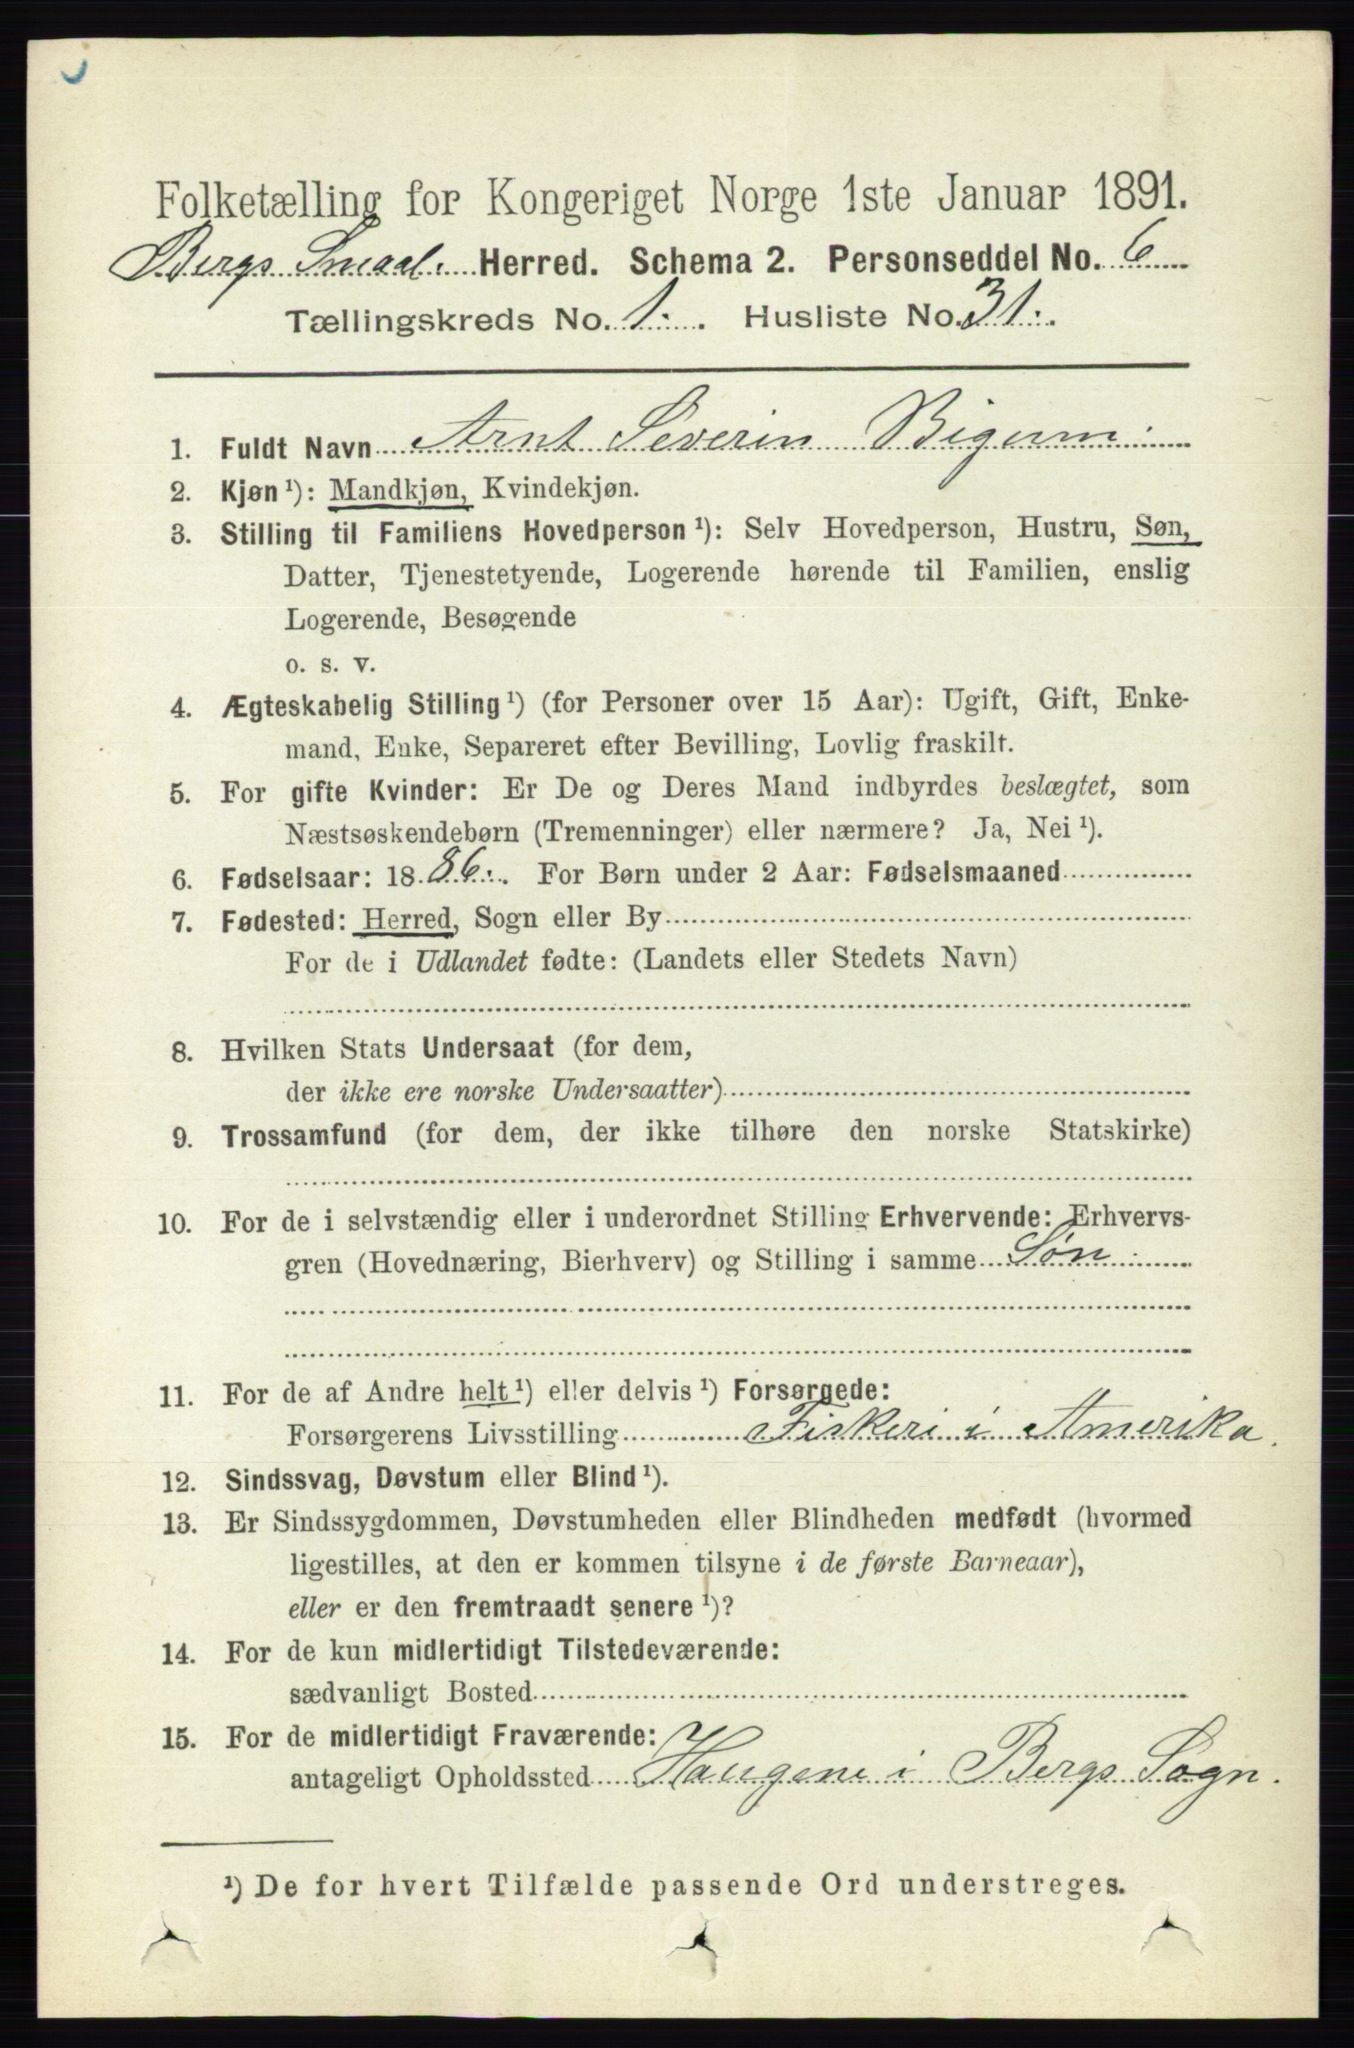 Folketælling for Kongeriget Norge 1ste Januar 1891.
Bergs Smaal. Herred. Schema 2. Personseddel No. 6
Tællingskreds No. 1. Husliste No. 31.
1. Fuldt Navn Arnt Severin Bigum.
2. Kjøn¹): Mandkjøn, Kvindekjøn.
3. Stilling til Familiens Hovedperson¹): Selv Hovedperson, Hustru, Søn,
Datter, Tjenestetyende, Logerende hørende til Familien, enslig
Logerende, Besøgende
o. s. v.
4. Ægteskabelig Stilling¹) (for Personer over 15 Aar): Ugift, Gift, Enke-
mand, Enke, Separeret efter Bevilling, Lovlig fraskilt.
5. For gifte Kvinder: Er De og Deres Mand indbyrdes beslægtet, som
Næstsøskendebørn (Tremenninger) eller nærmere? Ja, Nei¹).
6. Fødselsaar: 1886. For Børn under 2 Aar: Fødselsmaaned
7. Fødested: Herred, Sogn eller By
For de i Udlandet fødte: (Landets eller Stedets Navn)
8. Hvilken Stats Undersaat (for dem,
der ikke ere norske Undersaatter)
9. Trossamfund (for dem, der ikke tilhøre den norske Statskirke)
10. For de i selvstændig eller i underordnet Stilling Erhvervende: Erhvervs-
gren (Hovednæring, Bierhverv) og Stilling i samme Søn.
11. For de af Andre helt¹) eller delvis¹) Forsørgede:
Forsørgerens Livsstilling Fiskeri i Amerika.
12. Sindssvag, Døvstum eller Blind¹).
13. Er Sindssygdommen, Døvstumheden eller Blindheden medfødt (hvormed
ligestilles, at den er kommen tilsyne i de første Barneaar),
eller er den fremtraadt senere¹)?
14. For de kun midlertidigt Tilstedeværende:
sædvanligt Bosted
15. For de midlertidigt Fraværende:
antageligt Opholdssted Haugene i Bergs Sogn.
¹) De for hvert Tilfælde passende Ord understreges.